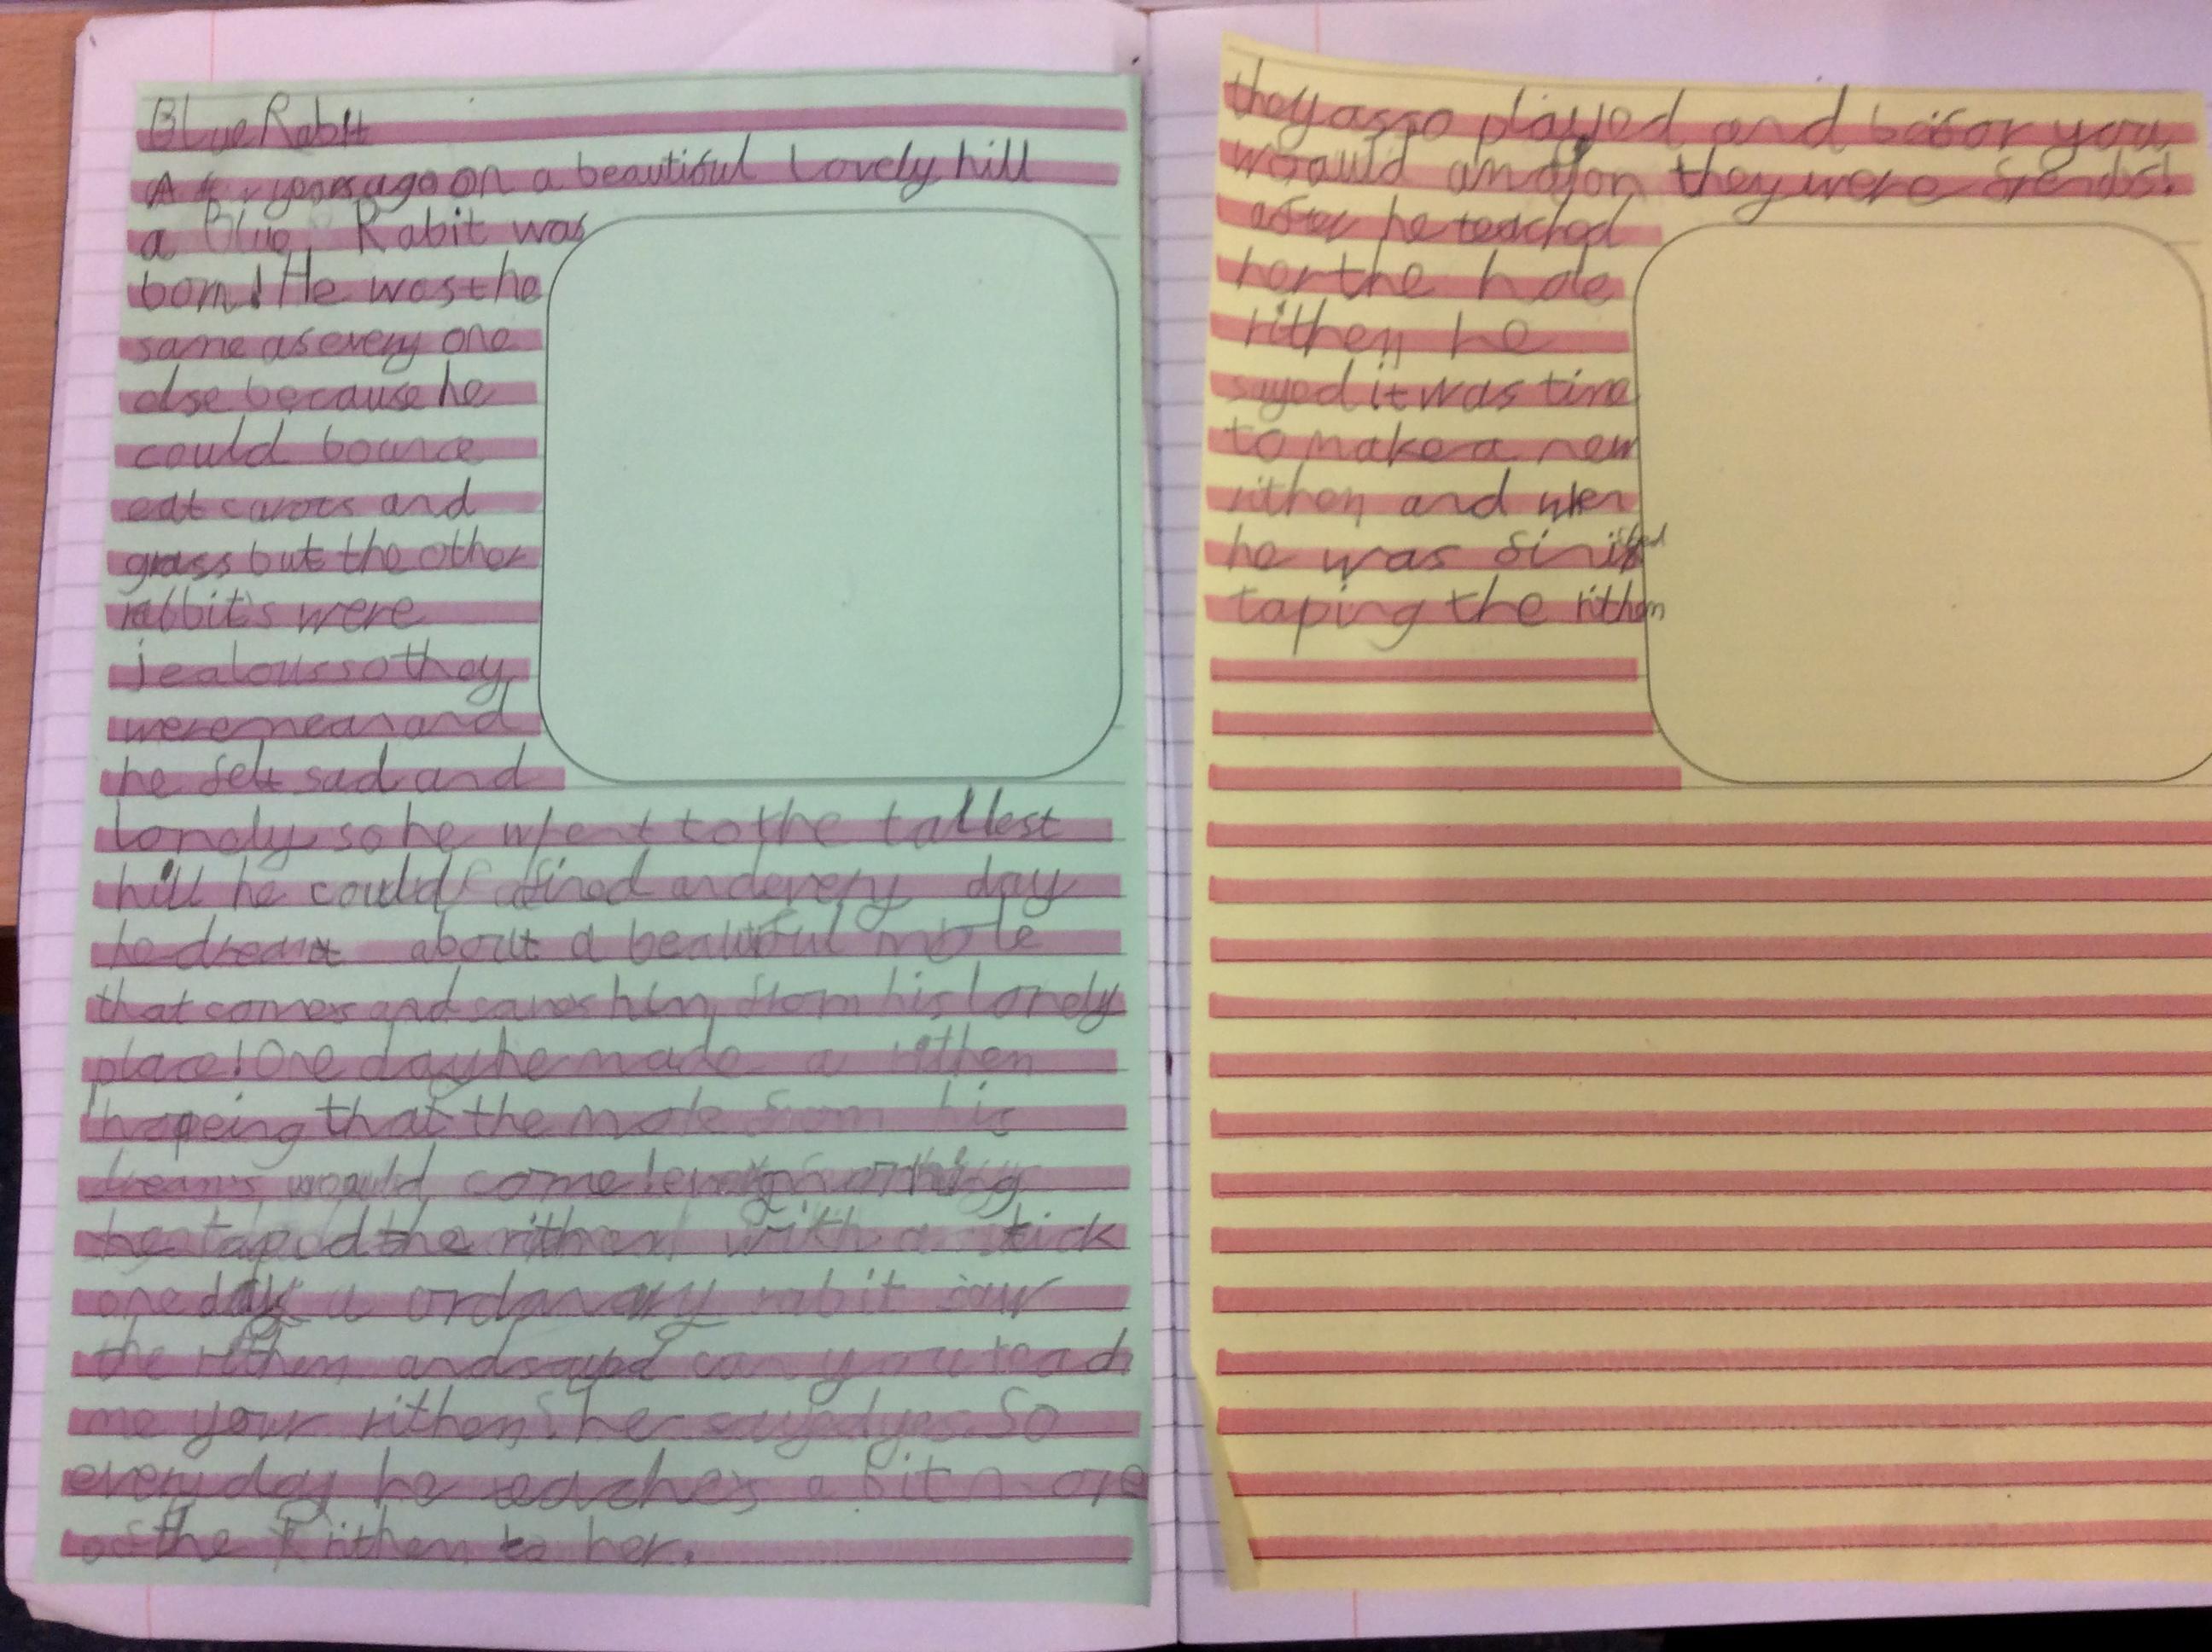 Blue Rabit
A years ago on a beautiful Lovely hill
a Blue Rabit was
born! He was the
same as every one
else because he
could bounce
eat carots and
grass but the other
rabbit's were
jealous so they
were mean and
he felt sad and
lonely so he went to the tallest
hill he could find and every day
he dreamt about a beautiful mole
that comes and saves him from his lonely
place! One day he made a rithem
hopeing that the mole from his
dreams would come! every morning
he taped the rithem with a stick
one day a ordanary rabit saw
the rithem and sayed can you teach
me your rithem? he sayed yes. So
every day he teaches a bit more
of the rithem to her.
they also played and befor you
would they were frends!
after he teached
her the hole
rithem he
sayed it was time
to make a new
rithem and when
he was finished
taping the rithem